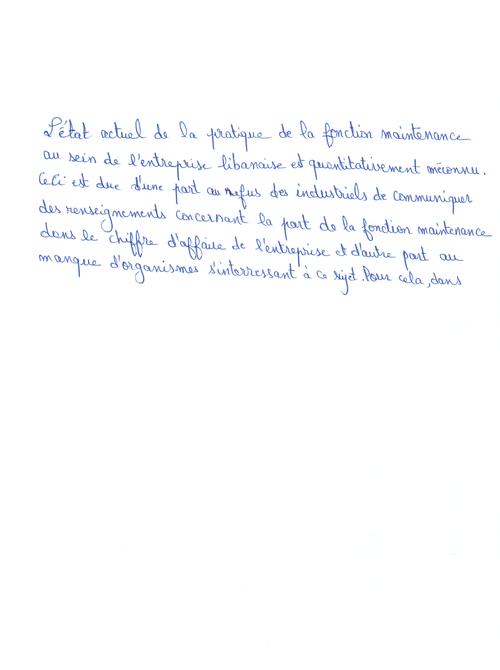 L'état actuel de la pratique de la fonction maintenance
au sein de l'entreprise libanaise et quantitativement méconnu.
Ceci est due d'une part au refus des industriels de communiquer
des renseignments concernant la part de la fonction maintenance
dans le chiffre d'affaire de l'entreprise et d'autre part au
manque d'organismes s'interressant à ce sujet. Pour cela, dans